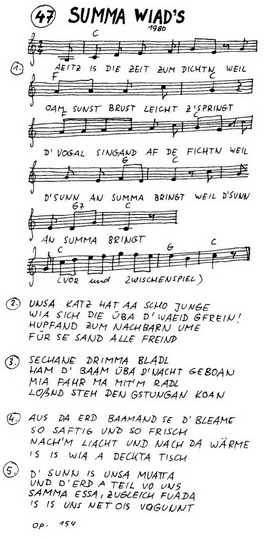 47 SUMMA WIAD'S
1980
C
1. AEITZ IS DIE ZEIT ZUM DICHTN WEIL
F C
OAM SUNST BRUST LEICHT Z'SPRINGT
F C
D'VOGAL SINGAND AF DE FICHTN WEIL
G C
D'SUNN AN SUMMA BRINGT WEIL D'SUNN
G7 C
AN SUMMA BRINGT
C G C
(VOR und ZWISCHENSPIEL)
2. UNSA KATZ HAT AA SCHO JUNGE
WIA SICH DIE ÜBA D'WAEID GFREIN!
HUPFAND ZUM NACHBARN UME
FÜR SE SAND ALLE FREIND
3. SECHANE DRIMMA BLADL
HAM D'BAAM ÜBA D'NACHT GEBOAN
MIA FAHR MA MIT'M RADL
LOßND STEH DEN GSTUNGAN KOAN
4. AUS DA ERD BAAMAND SE D'BLEAME
SO SAFTIG UND SO FRISCH
NACH'M LIACHT UND NACH DA WÄRME
IS IS WIA A DECKTA TISCH
5. D'SUNN IS UNSA MUATTA
UND D'ERD A TEIL VO UNS
SAMMA ESSA, ZUGLEICH FUADA
IS IS UNS NET OIS VOGUNNT
OP. 154